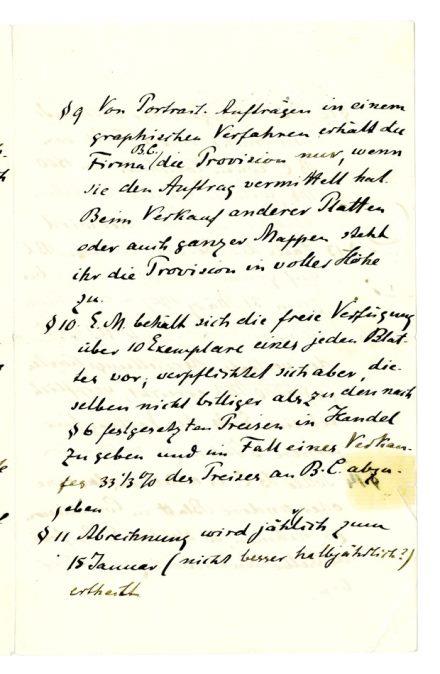 § 9 Von Portrait-Aufträgen in einem
graphischen Verfahren erhält die
Firma B.C. die Provision nur, wenn
sie den Auftrag vermittelt hat.
Beim Verkauf anderer Platten
oder auch ganzer Mappen steht
ihr die Provision in voller Höhe
zu.
§ 10. E.M. behält sich die freie Verfügung
über 10 Exemplare eines jeden Blat-
tes vor, verpflichtet sich aber, die-
selben nicht billiger als zu den nach
§ 6 festgesetzten Preisen in Handel
zu geben und im Fall eines Verkau-
fes 33 1/3 % des Preises an B.C. abzu-
geben
§ 11 Abrechnung wird jährlich zum
15 Januar (nicht besser halbjährlich?)
ertheilt